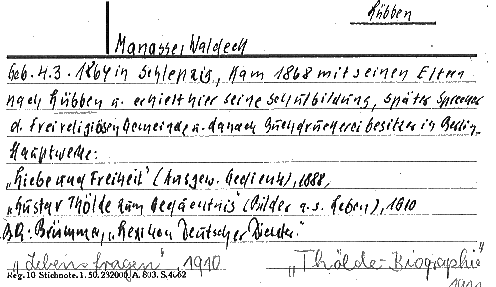 Lübben
Manasse, Waldeck
Geb. 4.3.1864 in Schlepzig, kam 1868 mit seinen Eltern
nach Lübben u. erhielt hier seine Schulbildung, später Sprecher
d. Freireligiösen Gemeinde u. danach Buchdruckereibesitzer in Berlin.
Hauptwerke:
„Liebe und Freiheit" (Ausgew. Gedichte), 1888,
„Gustav Thölde zum Gedächtnis (Bilder a. s. Leben), 1910
Brümmer, „Lexikon Deutscher Dichter"
„Lebensfragen", 1910 „Thölde-Biographie"
Reg. 10 Stichnote. 1. 50. 232000. A. 803. S. 4062